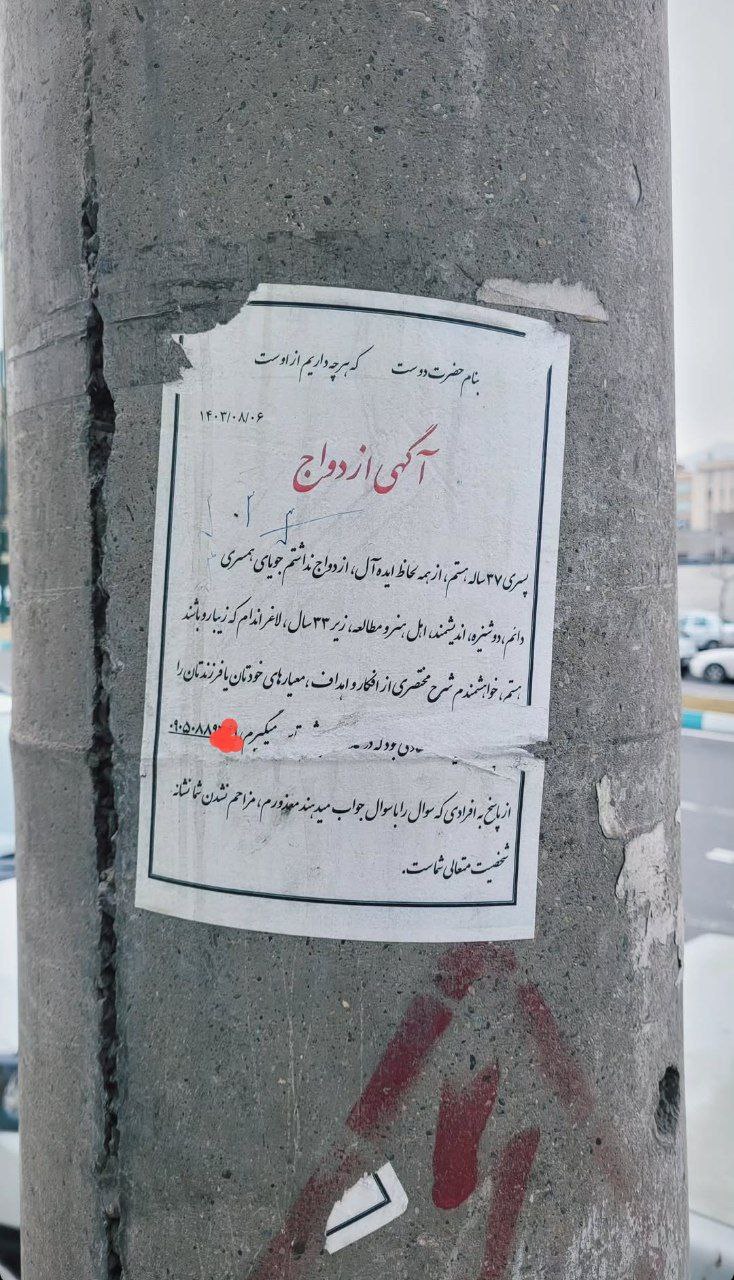 بنام حضرت دوست که هر چه داریم از اوست
۱۴۰۳/۰۸/۰۶
آگهی ازدواج
پسری ۳۷ ساله هستم، از همه لحاظ ایده آل، ازدواج نداشتم جویای همسری
دائم، دوشیزه، اندیشمند، اهل هنر و مطالعه، زیر ۳۳ سال، لاغر اندام که زیبا رو باشند
هستم، خواهشمندم شرح مختصری از افکار و اهداف، معیارهای خودتان یا فرزندتان را
میگیرم، ۰۹۰۵۰۸۸۹
از پاسخ به افرادی که سوال را با سوال جواب میدهند معذورم، مزاحم نشدن شما نشانه
شخصیت متعالی شماست.